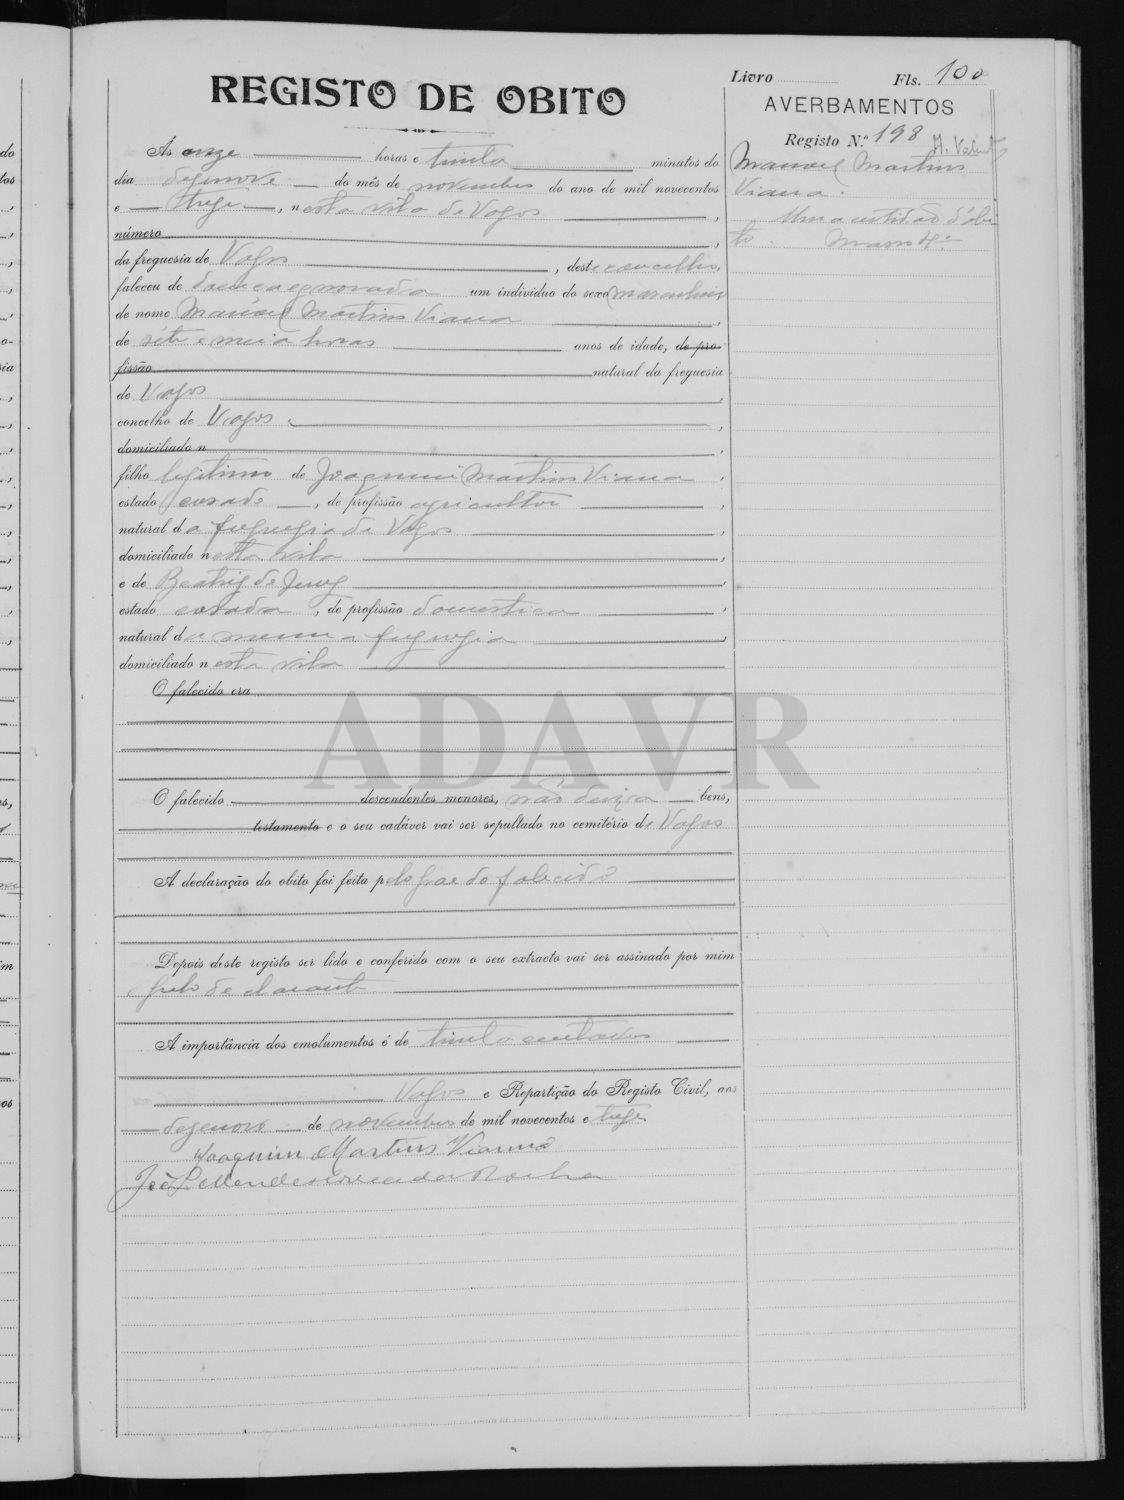 Livro Fls. 100
REGISTO DE OBITO
AVERBAMENTOS
Registo N.º 198
Manoel Martins
Viana.
Uma certidão d'óbi
to.
As onze horas e trinta minutos do
dia dezenove do mês de novembro do ano de mil novecentos
e treze, nesta vila de Vagos,
número,
da freguesia de Vagos, deste concelho,
faleceu de doença ignorada um individuo do sexo masculino
de nome Manoel Martins Viana,
de sete e meia horas anos de idade, de pro-
fissão natural da freguesia
de Vagos,
concelho de Vagos,
domiciliado n,
filho legitimo de Joaquim Martins Viana,
estado casado, de profissão agricultor,
natural da freguesia de Vagos,
domiciliado nesta vila,
e de Beatriz de Jesus,
estado casada, de profissão domestica,
natural da mesma freguesia,
domiciliado nesta vila
O falecido era
ADAVR
O falecido descendentes menores, não deixa bens,
testamento e o seu cadáver vai ser sepultado no cemitério de Vagos
A declaração do obito foi feita pelo pae do falecido
Depois deste registo ser lido e conferido com o seu extracto vai ser assinado por mim
e pelo declarante
A importância dos emolumentos é de trinta centavos
Vagos e Repartição do Registo Civil, aos
dezenove de novembro de mil novecentos e treze.
Joaquim Martins Vianna
Mendes Correia da Rocha